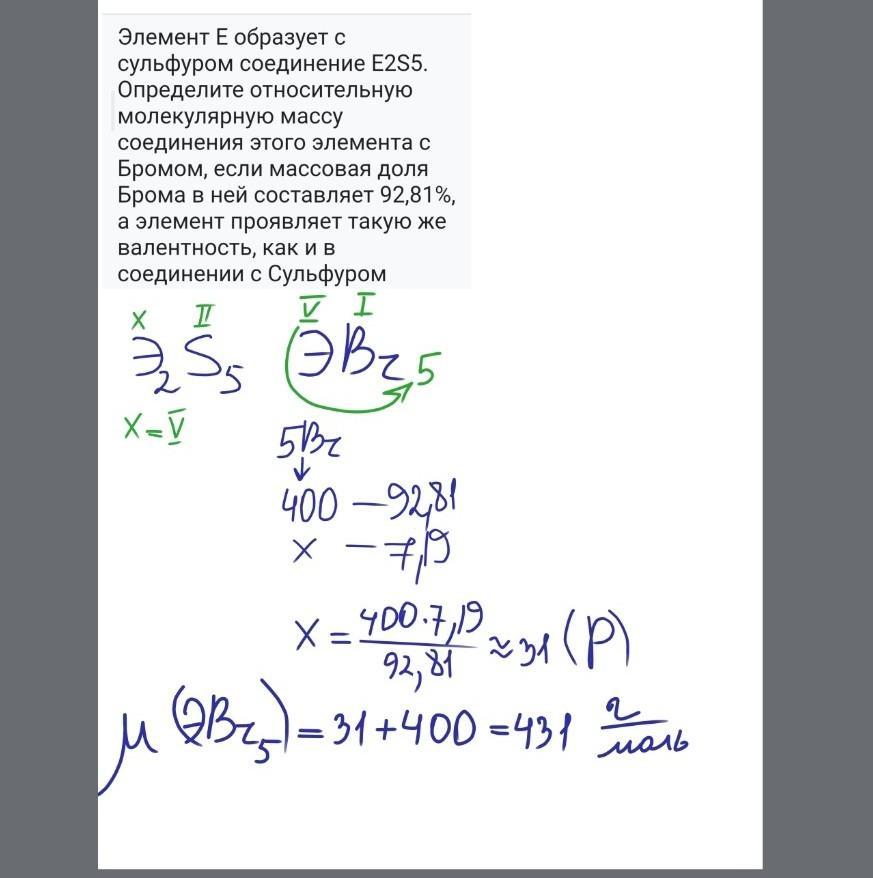 Элемент Е образует с
сульфуром соединение E2S5.
Определите относительную
молекулярную массу
соединения этого элемента с
Бромом, если массовая доля
Брома в ней составляет 92,81%,
а элемент проявляет такую же
валентность, как и в
соединении с Сульфуром
x II V I
Э2S5 ЭBr5
x = V
5Br
↓
400 – 92,81
x – 7,19
x = 400·7,19 / 92,81 ≈ 31 (P)
μ(ЭBr5) = 31 + 400 = 431 г/моль